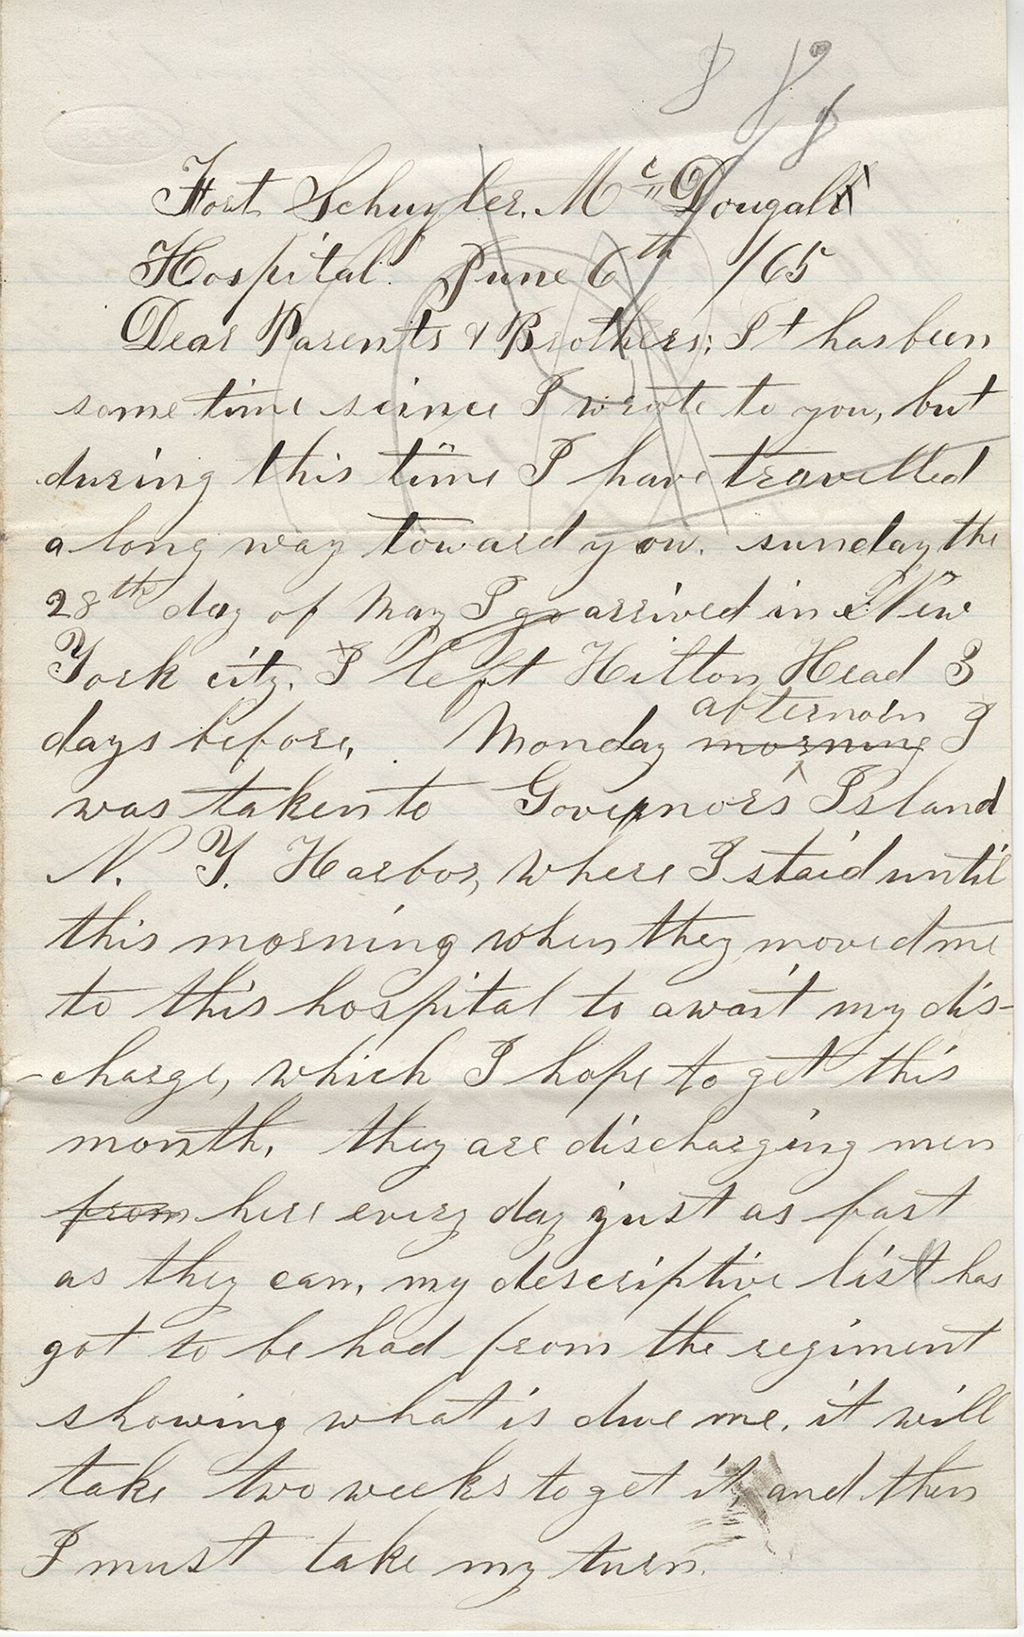 Fort Schuyler. Mc"Dougall
Hospital. June 6th /65
Dear Parents & Brothers; It has been
some time seince I wrote to you, but
during this time I have travelled
a long way toward you. sunday the
28th day of May I go arrived in New
York city. I left Hilton Head 3
days before. Monday morning afternoin I
was taken to Governors Island
N. Y. Harbor, where I staid until
this morning when they moved me
to this hospital to await my dis-
-charge, which I hope to get this
month. they are discharging men
from here every day just as fast
as they can. my descriptive list has
got to be had from the regiment
showing what is due me. it will
take two weeks to get it, and then
I must take my turn.